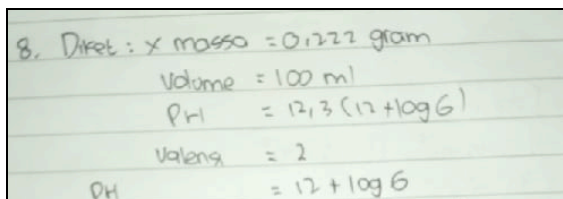 8. Diket : x massa = 0,222 gram
Volume = 100 ml
PH = 12,3 (12 + log 6)
Valensi = 2
PH = 12 + log 6